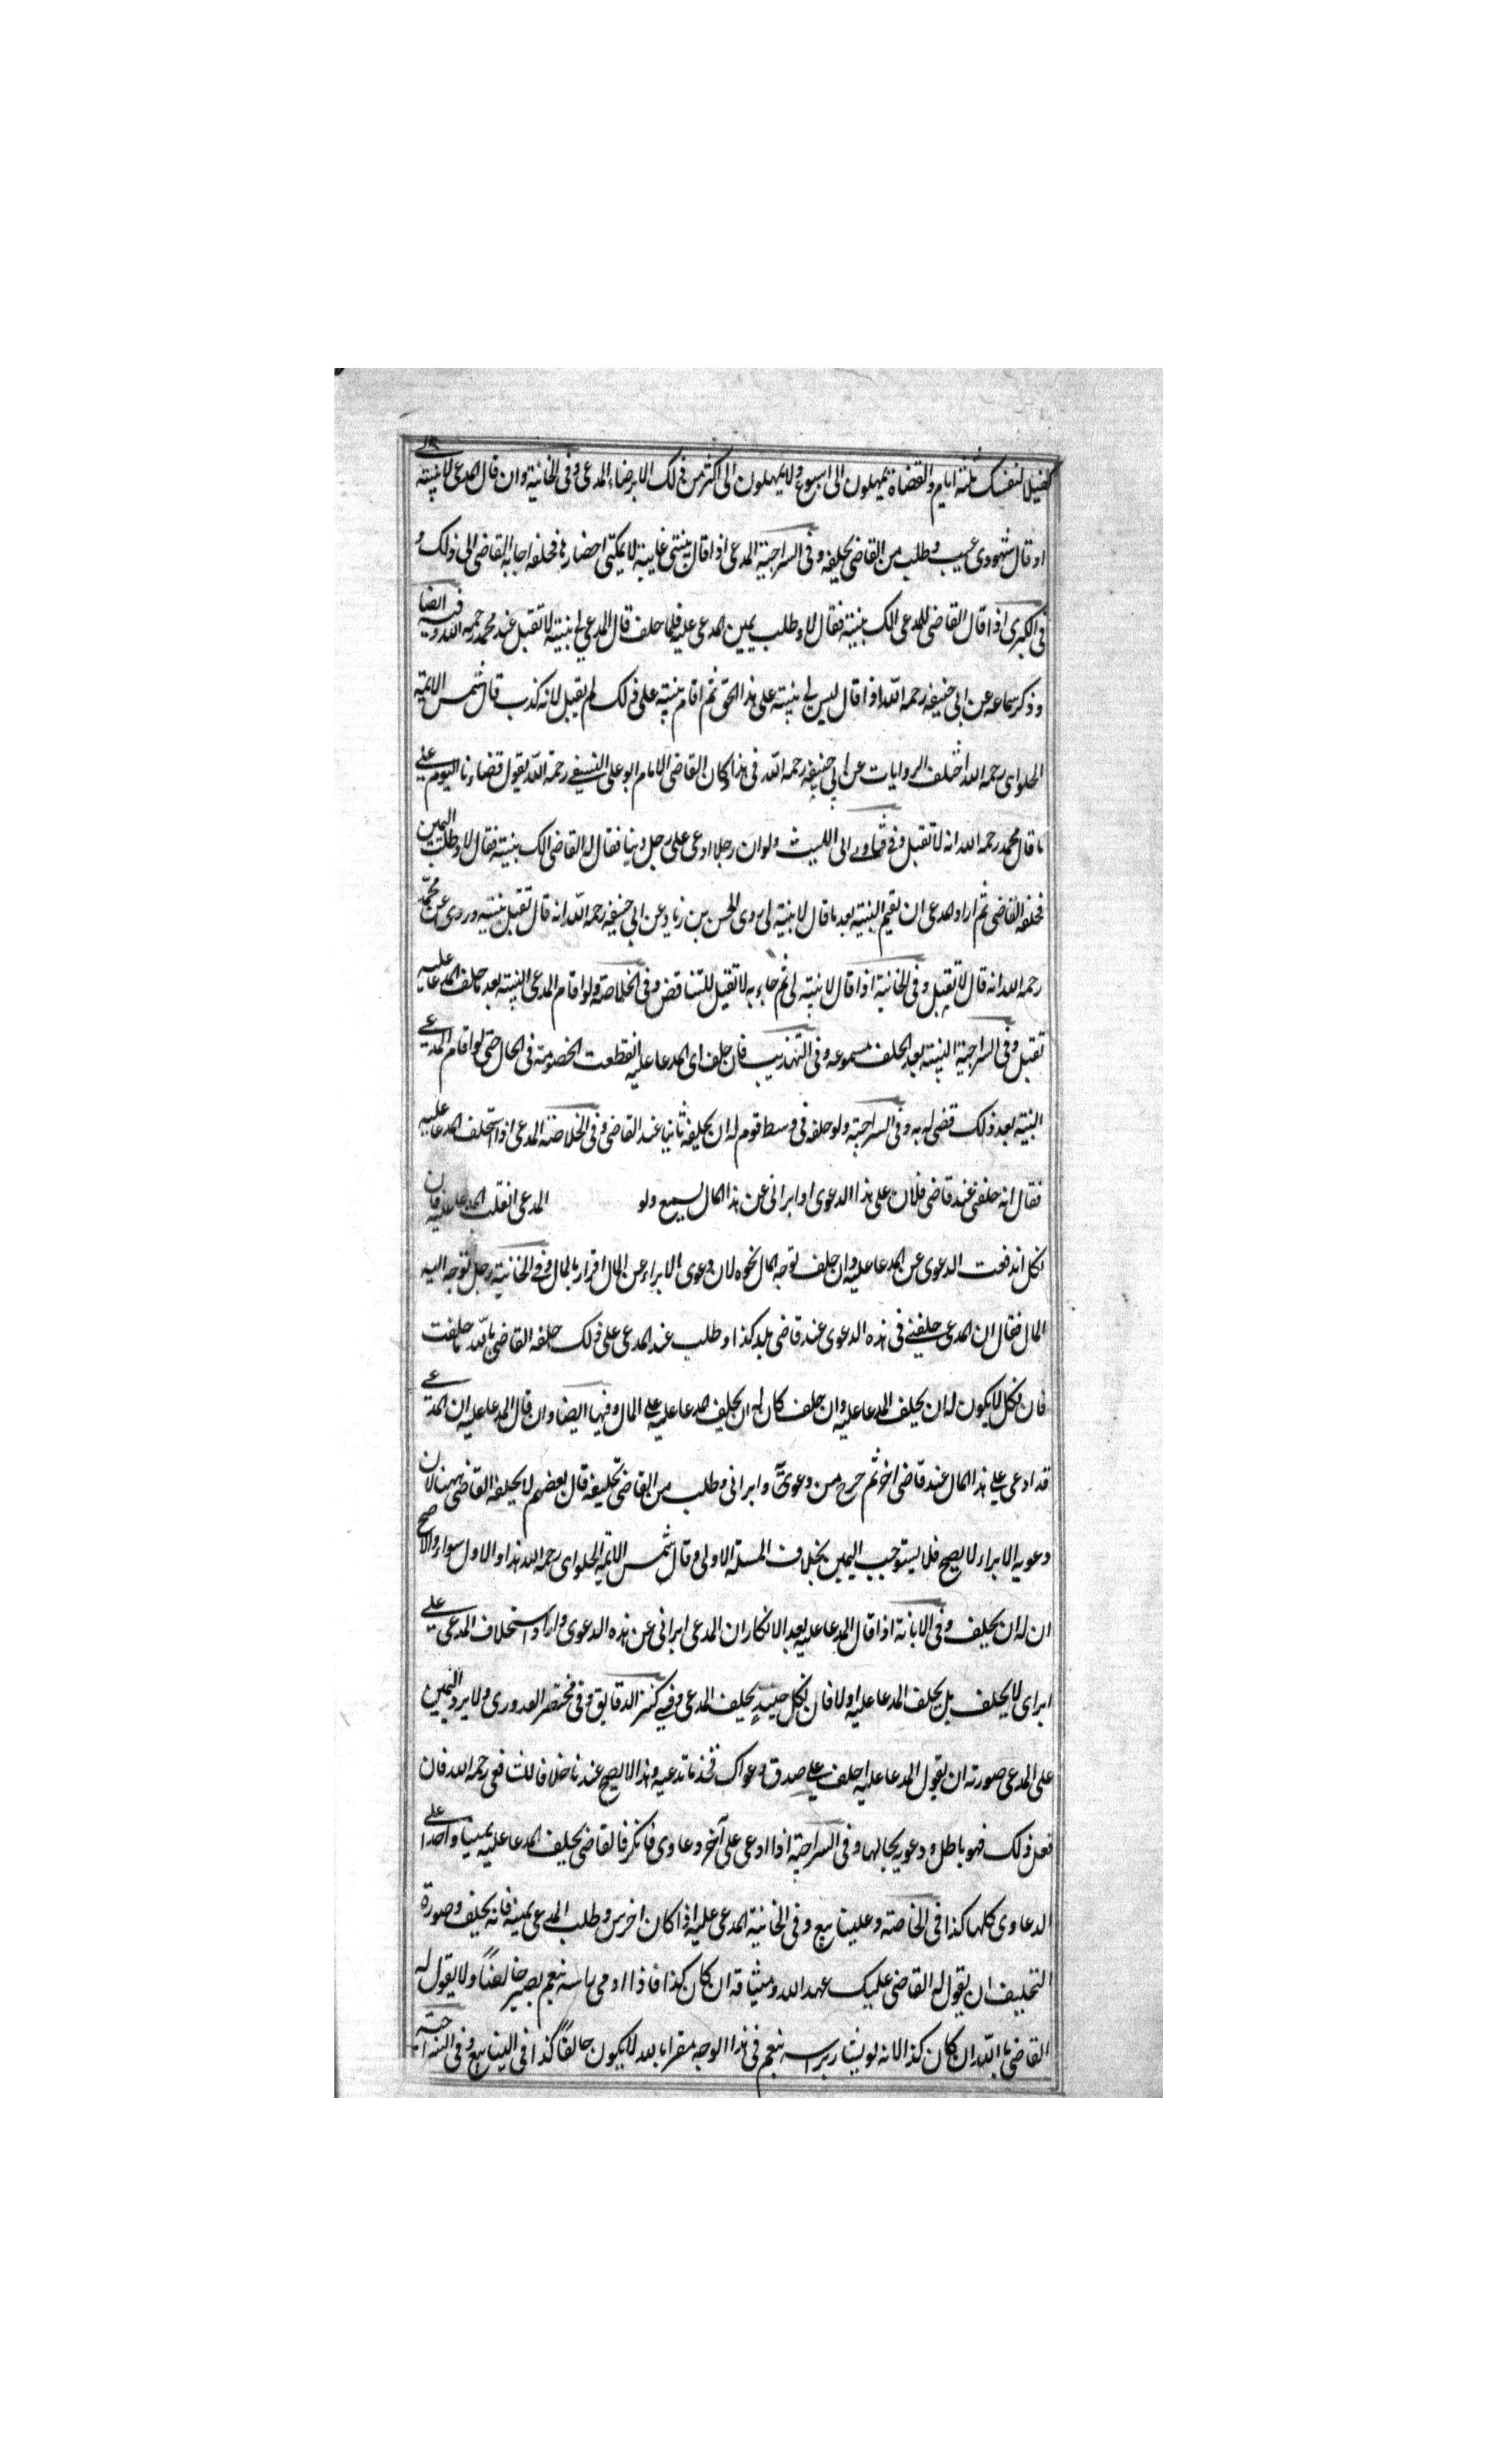 كفيلا لنفسك ثلثة ايام والقضاة يمهلون الى اسبوع ولا يمهلون الى اكثر من ذلك الا برضاء المدعى وفى الخانية وان قال المدعى لا بينة لے
او قال شهودى غيب وطلب من القاضى تحليفه وفى السراجية المدعى اذا قال بينتى غايبة لا يمكننى احضارها فحلفه اجابه القاضى الى ذلك و
فى الكبرى اذا قال القاضى للمدعى الك بينة فقال لا وطلب يمين المدعى عليه فلما حلف قال المدعى لى بينة لا تقبل عند محمد رحمه الله وفيه ايضا
وذكر سماعه عن ابى حنيفه رحمه الله اذا قال ليس لى بينة على هذا الحق ثم اقام بينة على ذلك لم يقبل لانه كذب قال شمس الايمة
الحلواى رحمه الله اختلف الروايات عن ابى حنيفه رحمه الله فى هذا وكان القاضى الامام ابو على النسفے رحمة الله يقول قضاءنا اليوم على
ما قال محمد رحمه الله انه لا تقبل وفى فتاوے ابى الليث ولو ان رجلا ادعى على رجل دينا فقال له القاضى الك بينة فقال لا وطلب اليمين
فحلفه القاضى ثم اراد المدعى ان يقيم البينة بعد ما قال لا بينة لى روى الحسن بن زياد عن ابى حنيفه رحمه الله انه قال تقبل بينته وروى عن محمد
رحمه الله انه قال لا تقبل وفى الخانية اذا قال لا بينة لى ثم جاء به لا تقبل للتناقض وفى الخلاصة ولو اقام المدعى البينة بعد ما حلف المدعا عليه
تقبل وفى السراجية البينة بعد الحلف مسموعه وفى التهذيب فان حلف اى المدعا عليه انقطعت الخصومة فى الحال حتى لو اقام المدعے
البينة بعد ذلك قضى له به وفى السراجية ولو حلفه فى وسط قوم له ان يحليفه ثانيا عند القاضى وفى الخلاصة المدعى اذا استحلف المدعا عليه
فقال انه حلفنى عند قاضى فلان على هذا الدعوى او ابرانى عن هذا المال يسمع ولو المدعى انقلب المدعا عليه فان
نكل اندفعت الدعوى عن المدعا عليه وان حلف توجه المال نحوه لان دعوى الابراء عن المال اقرار بالمال وفى الخانية رجل توجه اليه
المال فقال ان المدعى حلفنے فى هذه الدعوى عند قاضى بلد كذا وطلب عند المدعى على ذلك حلفه القاضى بالله ما حلفت
فان نكل لا يكون له ان يحلف المدعا عليه وان حلف كان له ان يحليف المدعا عليه على المال وفيها ايضا وان قال المدعا عليه ان المدعے
قد ادعى على هذا المال عند قاضى اخر ثم خرج من دعوى و ابرانى وطلب من القاضى تحليفه قال بعضهم لا يحلفه القاضى ههنا لان
دعويه الابراء لا يصح فلا يستوجب اليمين بخلاف المسئلة الاولى وقال شمس الايمة الحلواى رحمه الله هذا والاول سواء والاصح
ان له ان يحلف وفى الابانة اذا قال المدعا عليه بعد الانكار ان المدعى ابرانى عن هذه الدعوى واراد استحلاف المدعى على
ابراى لا يحلف بل يحلف المدعا عليه اولا فان نكل حينئذ يحلف المدعى وفى كنز الدقايق وفى مختصر القدورى ولا يرد اليمين
على المدعى صورته ان يقول المدعا عليه احلف على صدق دعواك فخذ ما تدعيه وهذا لا يصح عندنا خلافا للشافعى رحمه الله فان
فعل ذلك فهو باطل ودعويه بحالها وفى السراجية اذا ادعى على آخر دعاوى فانكر فالقاضى يحلف المدعا عليه يمينا واحدا على
الدعاوى كلها كذا فى الخاصة وعلينا بيع وفى الخانية المدعى عليه اذا كان اخرس وطلب المدعى يمينه فانه يحلف وصورة
التحليف ان يقول له القاضى عليك عهد الله وميثاقه ان كان كذا فاذا اومى براسه نعم يصير حالفا ولا يقول له
القاضى بالله ان كان كذا لانه لو يشار براسه نعم فى هذا الوجه مقرا بالله لا يكون حالفا كذا فى الينابيع وفى